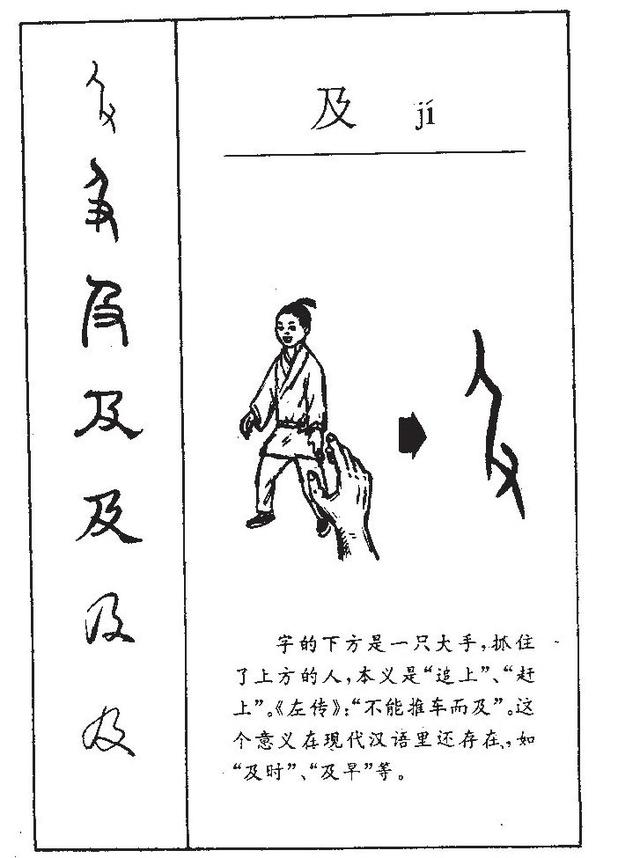 及 jí
字的下方是一只大手，抓住
了上方的人，本义是“追上”、“赶
上”。《左传》：“不能推车而及”。这
个意义在现代汉语里还存在，如
“及时”、“及早”等。
及
及
及
及
及
及
及